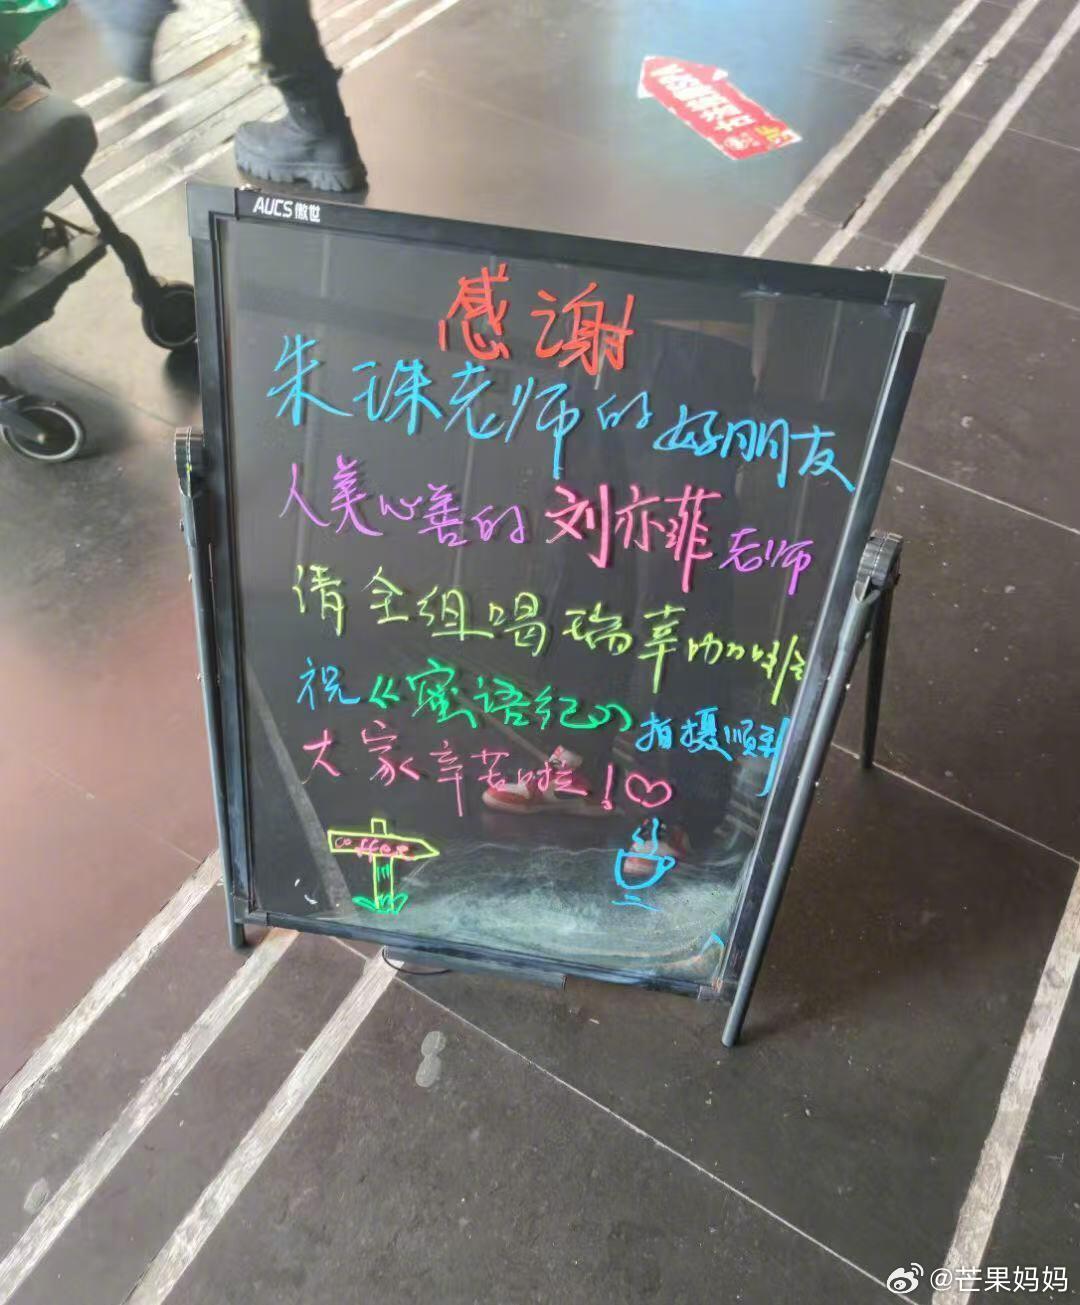 AUCS傲世
感谢
朱珠老师的好朋友
人美心善的刘亦菲老师
请全组喝瑞幸咖啡
祝《蜜语纪》拍摄顺利
大家辛苦啦！♡
coffee
@芒果妈妈